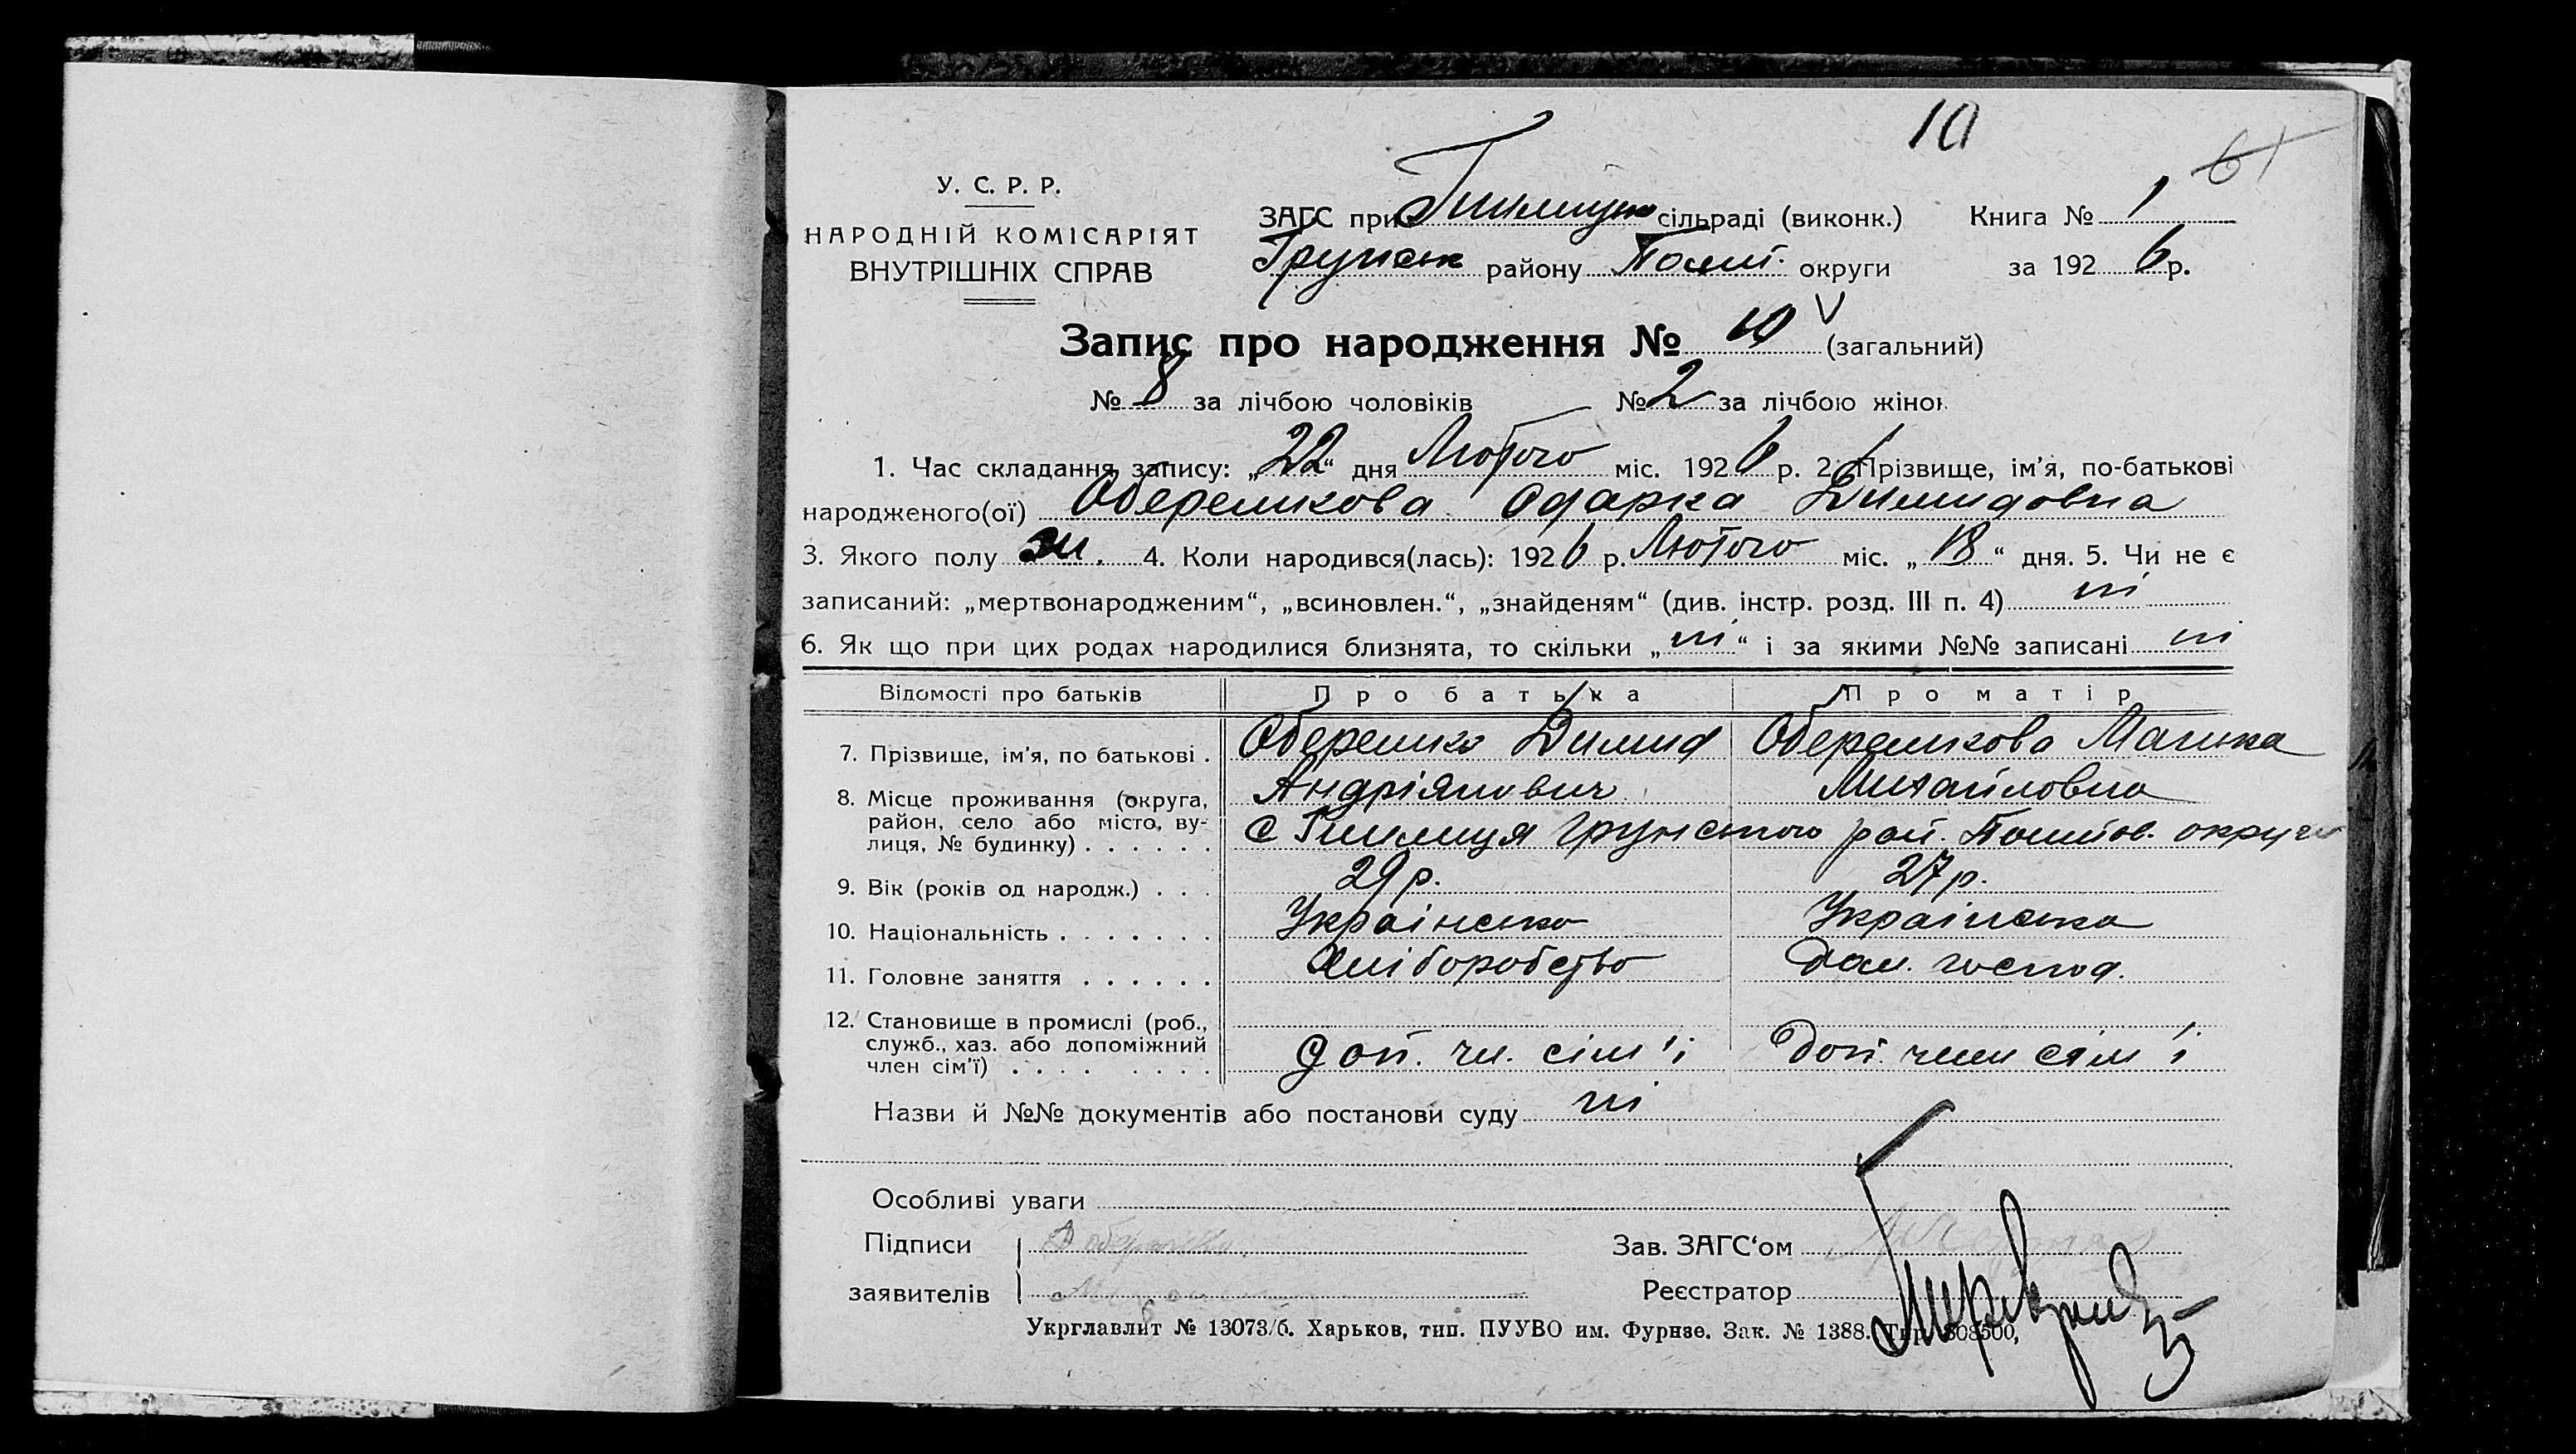 10
61
У. С. Р. Р.
НАРОДНІЙ КОМІСАРІЯТ
ВНУТРІШНІХ СПРАВ
ЗАГС при сільраді (виконк.) Книга № 1
Грунськ району Полт. округи за 1926 р.
Запис про народження № 10 (загальний)
№ 8 за лічбою чоловіків № 2 за лічбою жінок
1. Час складання запису: „22“ дня Лютого міс. 1926 р. 2. Прізвище, ім'я, по-батькові
народженого(ої) Оберемкова Одарка Димидовна
3. Якого полу ж. 4. Коли народився(лась): 1926 р. Лютого міс. „18“ дня. 5. Чи не є
записаний: „мертвонародженим“, „всиновлен.“, „знайденям“ (див. інстр. розд. III п. 4) ні
6. Як що при цих родах народилися близнята, то скільки „ні“ і за якими №№ записані ні
Відомості про батьків Про батька Про матір
7. Прізвище, ім'я, по батькові . Оберемко Димид Оберемкова
Андріянович Михайловна
8. Місце проживання (округа, район, село або місто, ву-лиця, № будинку) . . . . . . с Грунського рай. округи
9. Вік (років од народж.) . . . 29 р. 27 р.
10. Національність . . . . . . . Українська Українська
11. Головне заняття . . . . . . Хліборобство Дом. господ.
12. Становище в промислі (роб., служб., хаз. або допоміжний член сім'ї) . . . . . . . . Доп. чл. сім'ї Доп. член сям'ї
Назви й №№ документів або постанови суду ні
Особливі уваги
Підписи Зав. ЗАГС‘ом
заявителів Реєстратор
Укрглавліт № 13073/б. Харьков, тип. ПУУВО им. Фурнзе. Зак. № 1388.